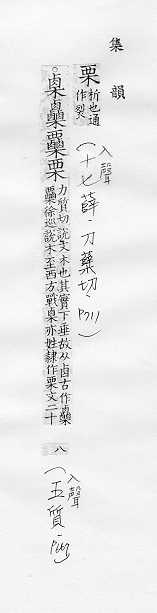 集韻
栗 析也通作裂
(入聲 十七薛·力蘖切·P711)
力質切說文木也其實下垂故从𠧪古作𣡷
徐巡說木至西方戰𣐺亦姓隸作栗文二十
八
(入聲 五質·